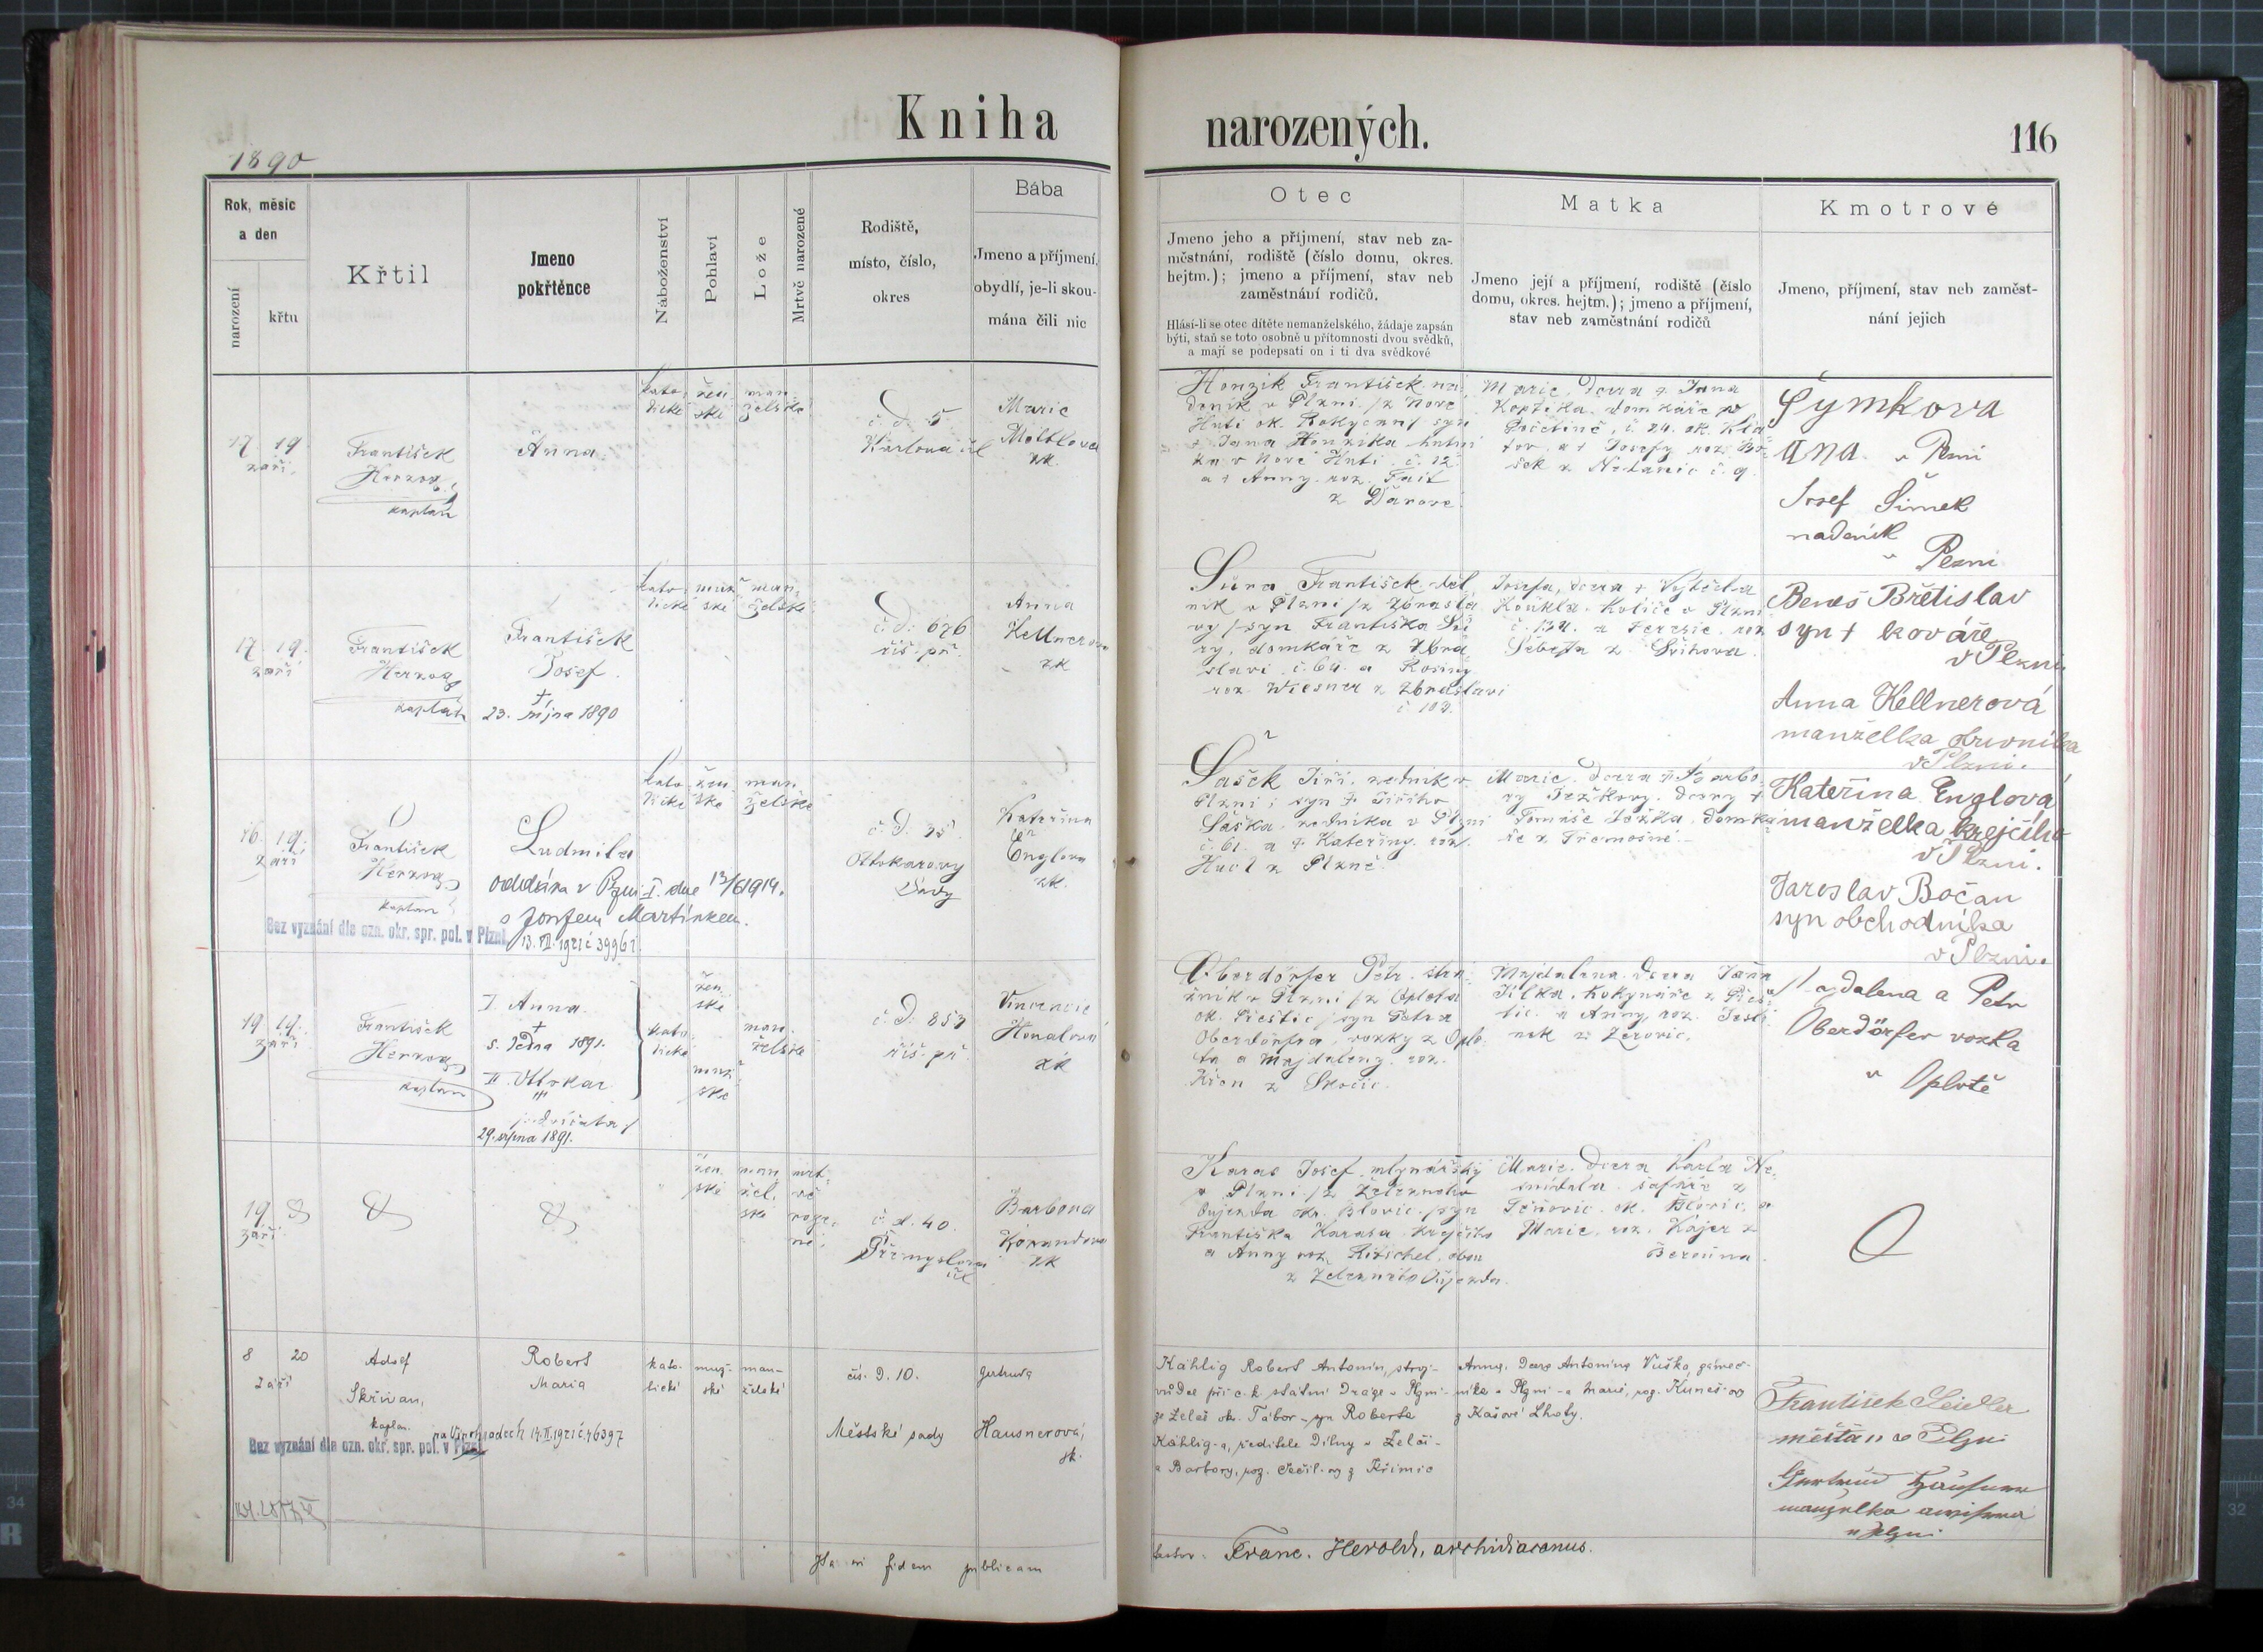 Kniha
narozených.
116
1890
Rok, měsíc
a den
narození
křtu
Křtil
Jmeno
pokřtěnce
Náboženství
Pohlaví
Lože
Mrtvě narozené
Rodiště,
místo, číslo,
okres
Bába
Jmeno a příjmení,
obydlí, je-li skou-
mána čili nic
Otec
Jmeno jeho a příjmení, stav neb za-
městnání, rodiště (číslo domu, okres.
hejtm.); jmeno a příjmení, stav neb
zaměstnání rodičů.
Hlásí-li se otec dítěte nemanželského, žádaje zapsán
býti, staň se toto osobně u přítomnosti dvou svědků,
a mají se podepsati on i ti dva svědkové
Matka
Jmeno její a příjmení, rodiště (číslo
domu, okres. hejtm.); jmeno a příjmení,
stav neb zaměstnání rodičů
Kmotrové
Jmeno, příjmení, stav neb zaměst-
nání jejich
17. 19
září
František
Herzog
kaplan
Anna
kato-
lické
žen-
ské
man-
želské
č. d. 5
Karlova ul
Marie
zk.
Honzik František ná-
deník v Plzni /z Nové
Huti ok. Rokycany/ syn
† Jana Honzika hutní-
ka v Nové Huti č. 12
a † Anny roz. Fait
Marie, dcera † Jana
č. 24. ok. Kla-
tov, a † Josefy roz.
Šymkova
ana v Plzni
Josef Šimek
nadeník
v Plzni
17. 19.
září
František
Herzog
kaplan
František
Josef
†
23. října 1890
kato-
lické
muž-
ské
man-
želské
č. d. 676
říš. př.
Anna
Kellnerova
zk
František děl-
ník v Plzni /z Zbrasla-
vy / syn Františka
domkáře z Zbra-
slavi č. 64. a Rosiny
roz. Wiesner z Zbraslavi
č. 102.
Josefa, dcera † Vojtěcha
Koukla v Plzni
č. 134. a Terezie roz
Beneš Břetislav
syn † kováře
v Plzni
Anna Kellnerová
manželka
v Plzni.
16. 19.
září
František
Herzog
kaplan
Ludmila
oddána v Plzni I. dne 13/6 1914.
s Josefem Martínkem.
Bez vyznání dle ozn. okr. spr. pol. v Plzni
13. VII. 1921 č 39961.
kato-
lické
žen-
ské
man-
želské
č. d. 35
Ottokarovy
Sady
Kateřina
Englova
zk.
Šašek Jiří, zedník v
Plzni, syn † Jiřího
Šáška, zedníka v Plzni
č. 61. a † Kateřiny roz.
z Plzně
Marie, dcera † Barbo-
ry Ježkovy, dcery †
Tomáše Ježka, domká-
ře z Třemošné
Kateřina Englová
manželka krejčího
v Plzni.
Jaroslav Bočan
syn obchodníka
v Plzni.
19 19.
září
František
Herzog
kaplan
I. Anna
†
5. ledna 1891.
II. Ottokar
/: dvojčata :/
29. srpna 1891.
kato-
lické
žen-
ské
muž-
ské
man-
želské
č. d. 853
říš. př.
Vincencie
zk
Oberdörfer Petr
v Plzni /z Oplota
ok. Přeštic/ syn Petra
Oberdörfra, vozky z Oplo-
ta a Magdaleny roz.
z Skočic.
Majdalena, dcera Jana
Jílka z Přeš-
tic a Anny roz.
z Žerovic.
Magdalena a Petr
Oberdörfer vozka
v Oplotě
19
září
žen-
ské
man-
žel-
ské
mrt-
vě
roze-
né
č. d. 40.
Přemyslova
ul
Barbora
Korandova
zk
Karas Josef mlynářský
v Plzni /z Železného
Oujezda okr. Blovic/ syn
Františka Karasa, krejčího
a Anny roz. Ritschel, obou
z Železného Oujezda.
Marie, dcera Karla Ne-
šafáře z
ok. Blovic, a
Marie, roz. Kajer z
Berouna
8 20
Září
Adolf
Skřivan,
kaplan.
Robert
Maria
kato-
lické
muž-
ské
man-
želské
čís. D. 10.
Městské sady
Gertruda
Hausnerová,
zk.
na Vinohradech 14. II. 1921 č. 46397
Bez vyznání dle ozn. okr. spr. pol. v Plzni
Kahlig Robert Antonín, stroj-
vůdce při c. k. státní Dráze v Plzni-
ze Želeč okr. Tábor - syn Roberta
Kahlig-a, ředitele Dílny v Želči-
a Barbory, roz. z Křimic
Anna, Dcera Antonína Vuška, zámeč-
níka v Plzni - a Marie, roz. Kuneš-ov
z Kašové Lhoty.
František Seidler
měšťan v Plzni
Gertrud Hausner
manželka
v Plzni
fidem publicam
Franc. Herold, archidiaconus.